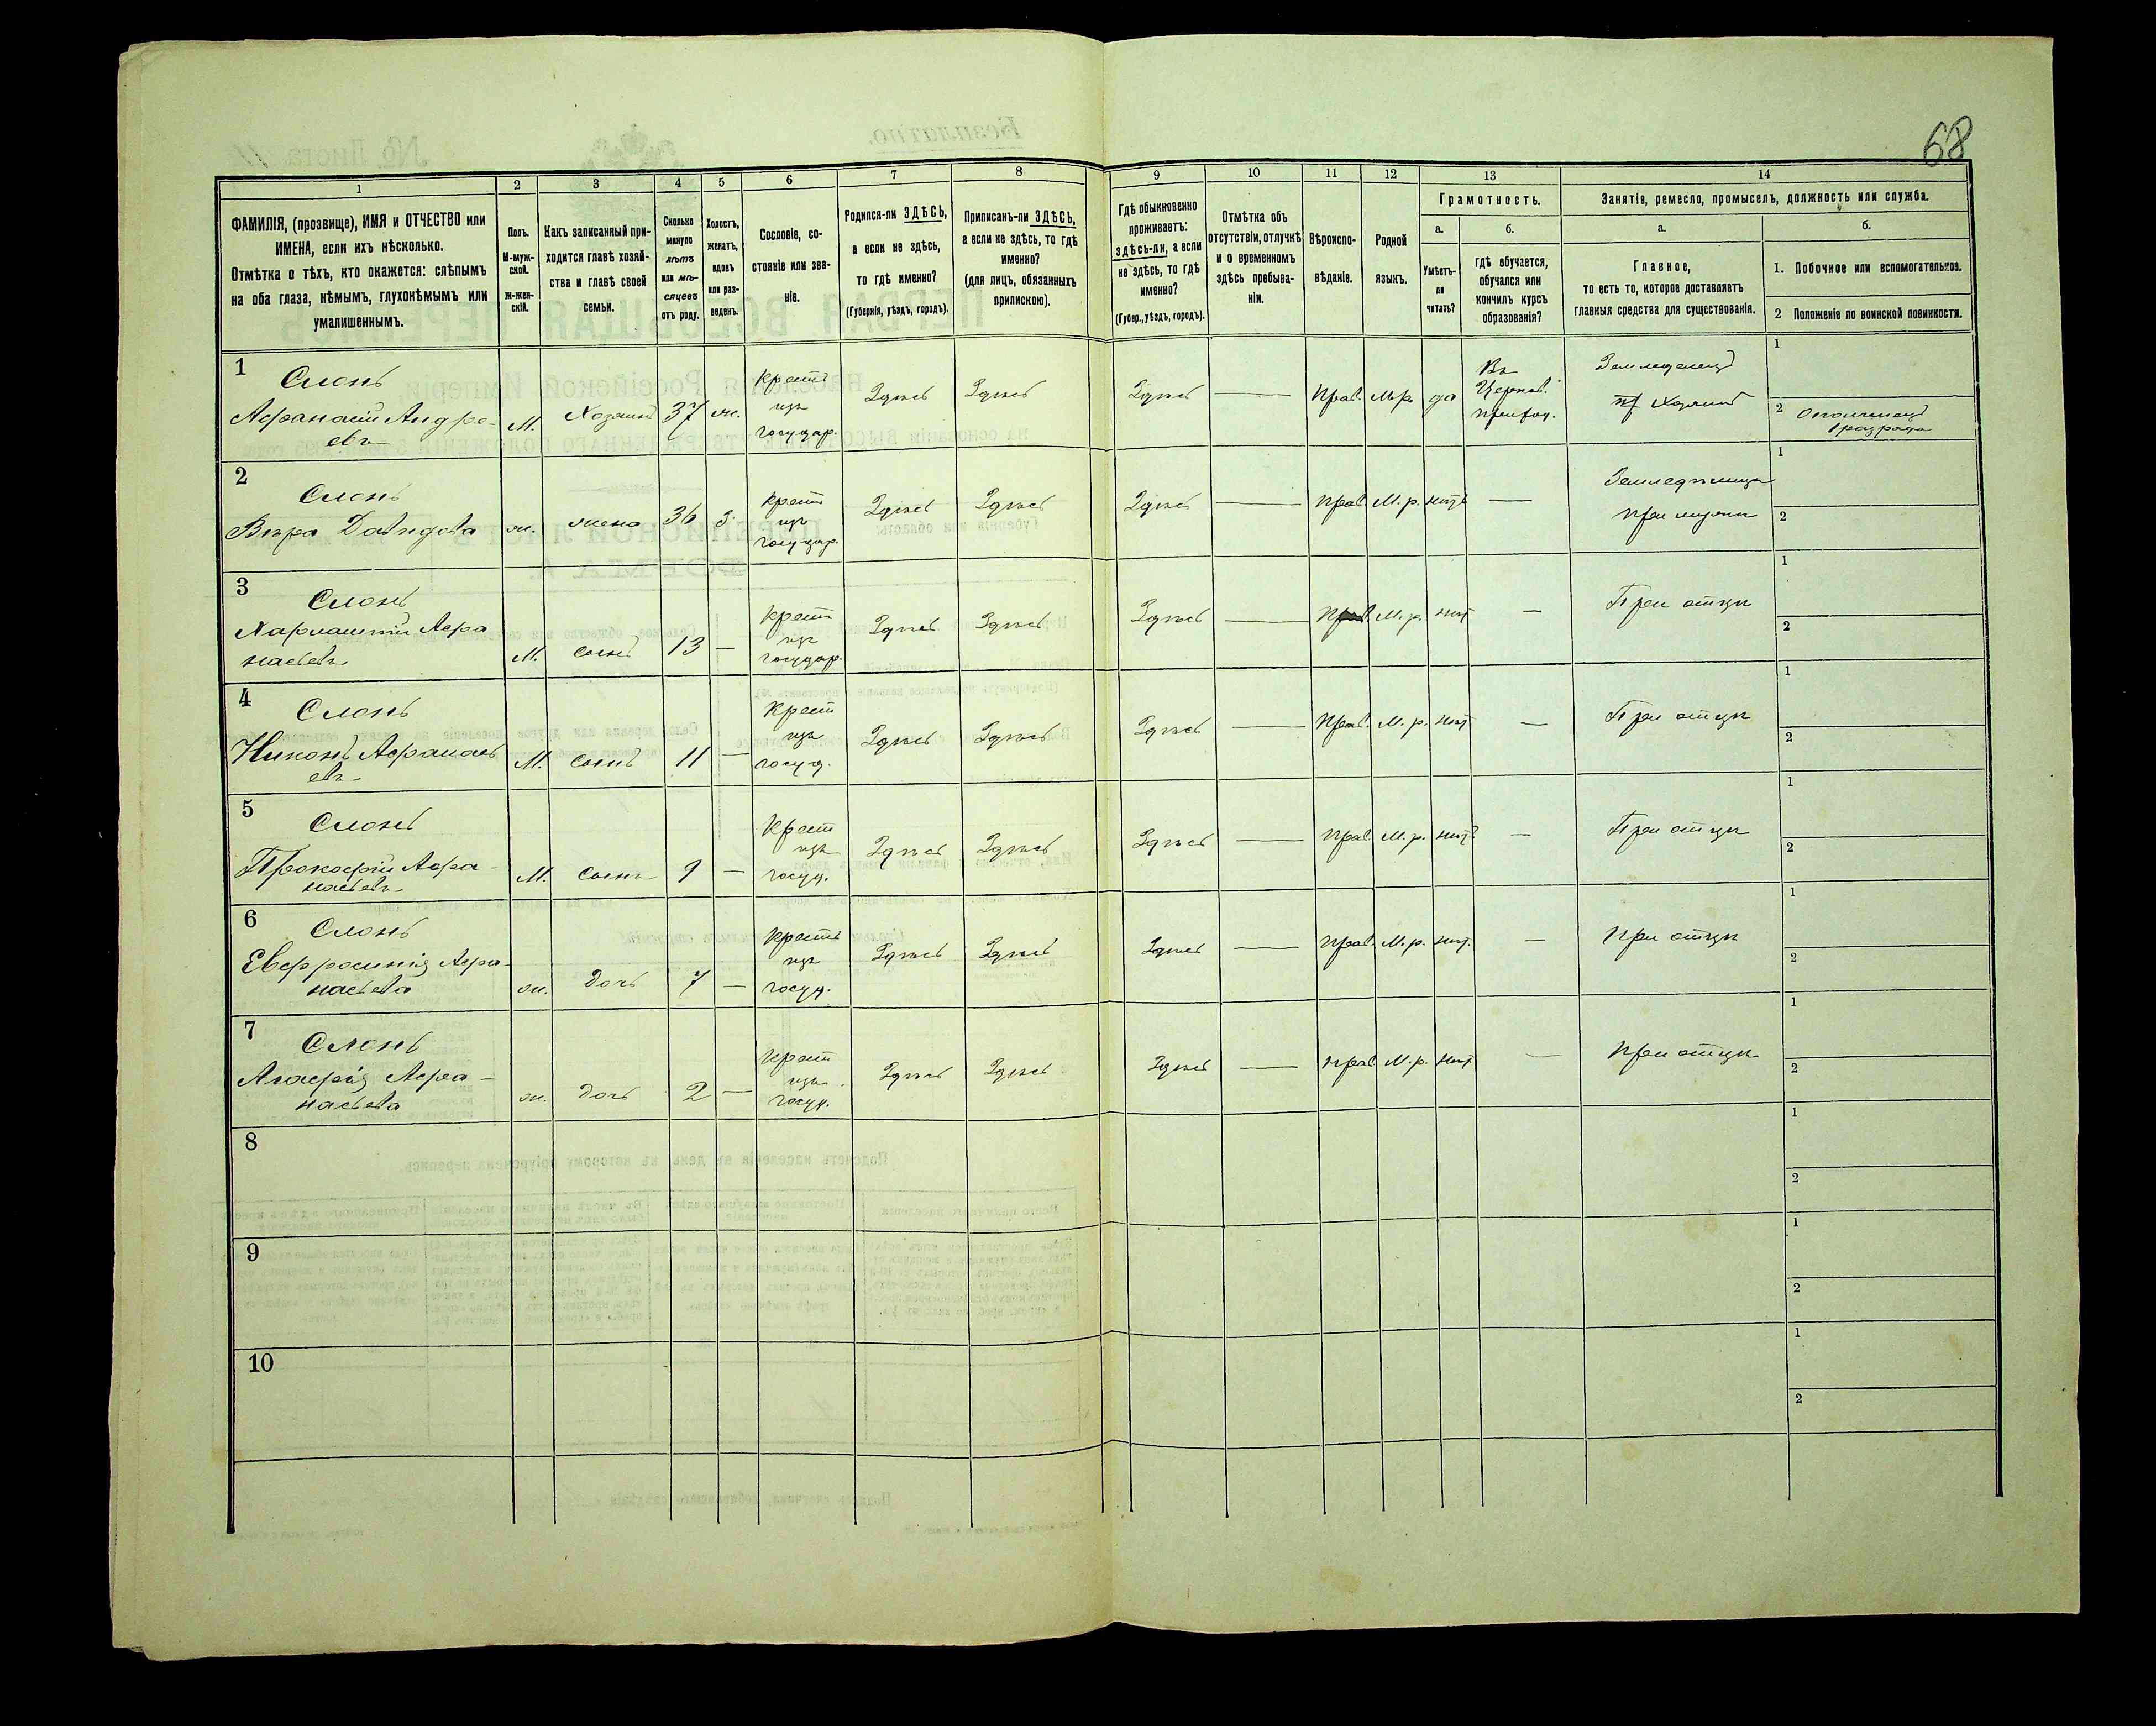 68
1 2 3 4 5 6 7 8 9 10 11 12 13 14
ФАМИЛІЯ, (прозвище), ИМЯ и ОТЧЕСТВО или
ИМЕНА, если ихъ нѣсколько.
Отмѣтка о тѣхъ, кто окажется: слѣпымъ
на оба глаза, нѣмымъ, глухонѣмымъ или
умалишеннымъ.
Полъ.
М-муж-
ской.
Ж-жен-
скій.
Какъ записанный при-
ходится главѣ хозяй-
ства и главѣ своей
семьи.
Сколько
минуло
лѣтъ
или мѣ-
сяцевъ
отъ роду.
Холостъ,
женатъ,
вдовъ
или раз-
веденъ.
Сословіе, со-
стояніе или зва-
ніе.
Родился-ли ЗДѢСЬ,
а если не здѣсь,
то гдѣ именно?
(Губернія, уѣздъ, городъ).
Приписанъ-ли ЗДѢСЬ,
а если не здѣсь, то гдѣ
именно?
(для лицъ, обязанныхъ
припискою).
Гдѣ обыкновенно
проживаетъ:
здѣсь-ли, а если
не здѣсь, то гдѣ
именно?
(Губер., уѣздъ, городъ).
Отмѣтка объ
отсутствіи, отлучкѣ
и о временномъ
здѣсь пребыва-
ніи.
Вѣроиспо-
вѣданіе.
Родной
языкъ.
Грамотность.
а.
Умѣетъ-
ли
читать?
б.
гдѣ обучается,
обучался или
кончилъ курсъ
образованія?
Занятія, ремесло, промыселъ, должность или служба.
а.
Главное,
то есть то, которое доставляетъ
главныя средства для существованія.
б.
1. Побочное или вспомогательное.
2 Положеніе по воинской повинности.
1
Слонъ
Афанасій Андре-
евъ
М.
Хозяинъ
37
ж.
Крестъ
изъ
государ.
Здѣсь
Здѣсь
Здѣсь
—
Прав.
М.р.
да
Въ
Церков.
приход.
Земледѣлецъ
Хозяинъ
1
2 Ополченецъ
1 разряда
2
Слонъ
Вѣра Давидова
ж.
жена
36
З.
Крест
изъ
государ.
Здѣсь
Здѣсь
Здѣсь
—
Прав.
М.р.
нѣтъ
—
Земледѣлица
При мужѣ
1
2
3
Слонъ
Харлампій Афа
насьевъ
М.
Сынъ
13
—
Крест
изъ
государ.
Здѣсь
Здѣсь
Здѣсь
—
Прав.
М.р.
нѣт
—
При отцѣ
1
2
4
Слонъ
Никонъ Афанась
евъ
М.
Сынъ
11
—
Крест
изъ
госуд.
Здѣсь
Здѣсь
Здѣсь
—
Прав.
М.р.
нѣт
—
При отцѣ
1
2
5
Слонъ
Прокофій Афа-
насьевъ
М.
Сынъ
9
—
Крест
изъ
госуд.
Здѣсь
Здѣсь
Здѣсь
—
Прав.
М.р.
нѣт
—
При отцѣ
1
2
6
Слонъ
Евфросинія Афа-
насьева
ж.
Дочь
7
—
Крестъ
изъ
госуд.
Здѣсь
Здѣсь
Здѣсь
—
Прав.
М.р.
нѣт.
—
При отцѣ
1
2
7
Слонъ
Агафія Афа-
насьева
ж.
Дочь
2
—
Крест
изъ
госуд.
Здѣсь
Здѣсь
Здѣсь
—
Прав.
М.р.
нѣт
—
При отцѣ
1
2
8
1
2
9
1
2
10
1
2